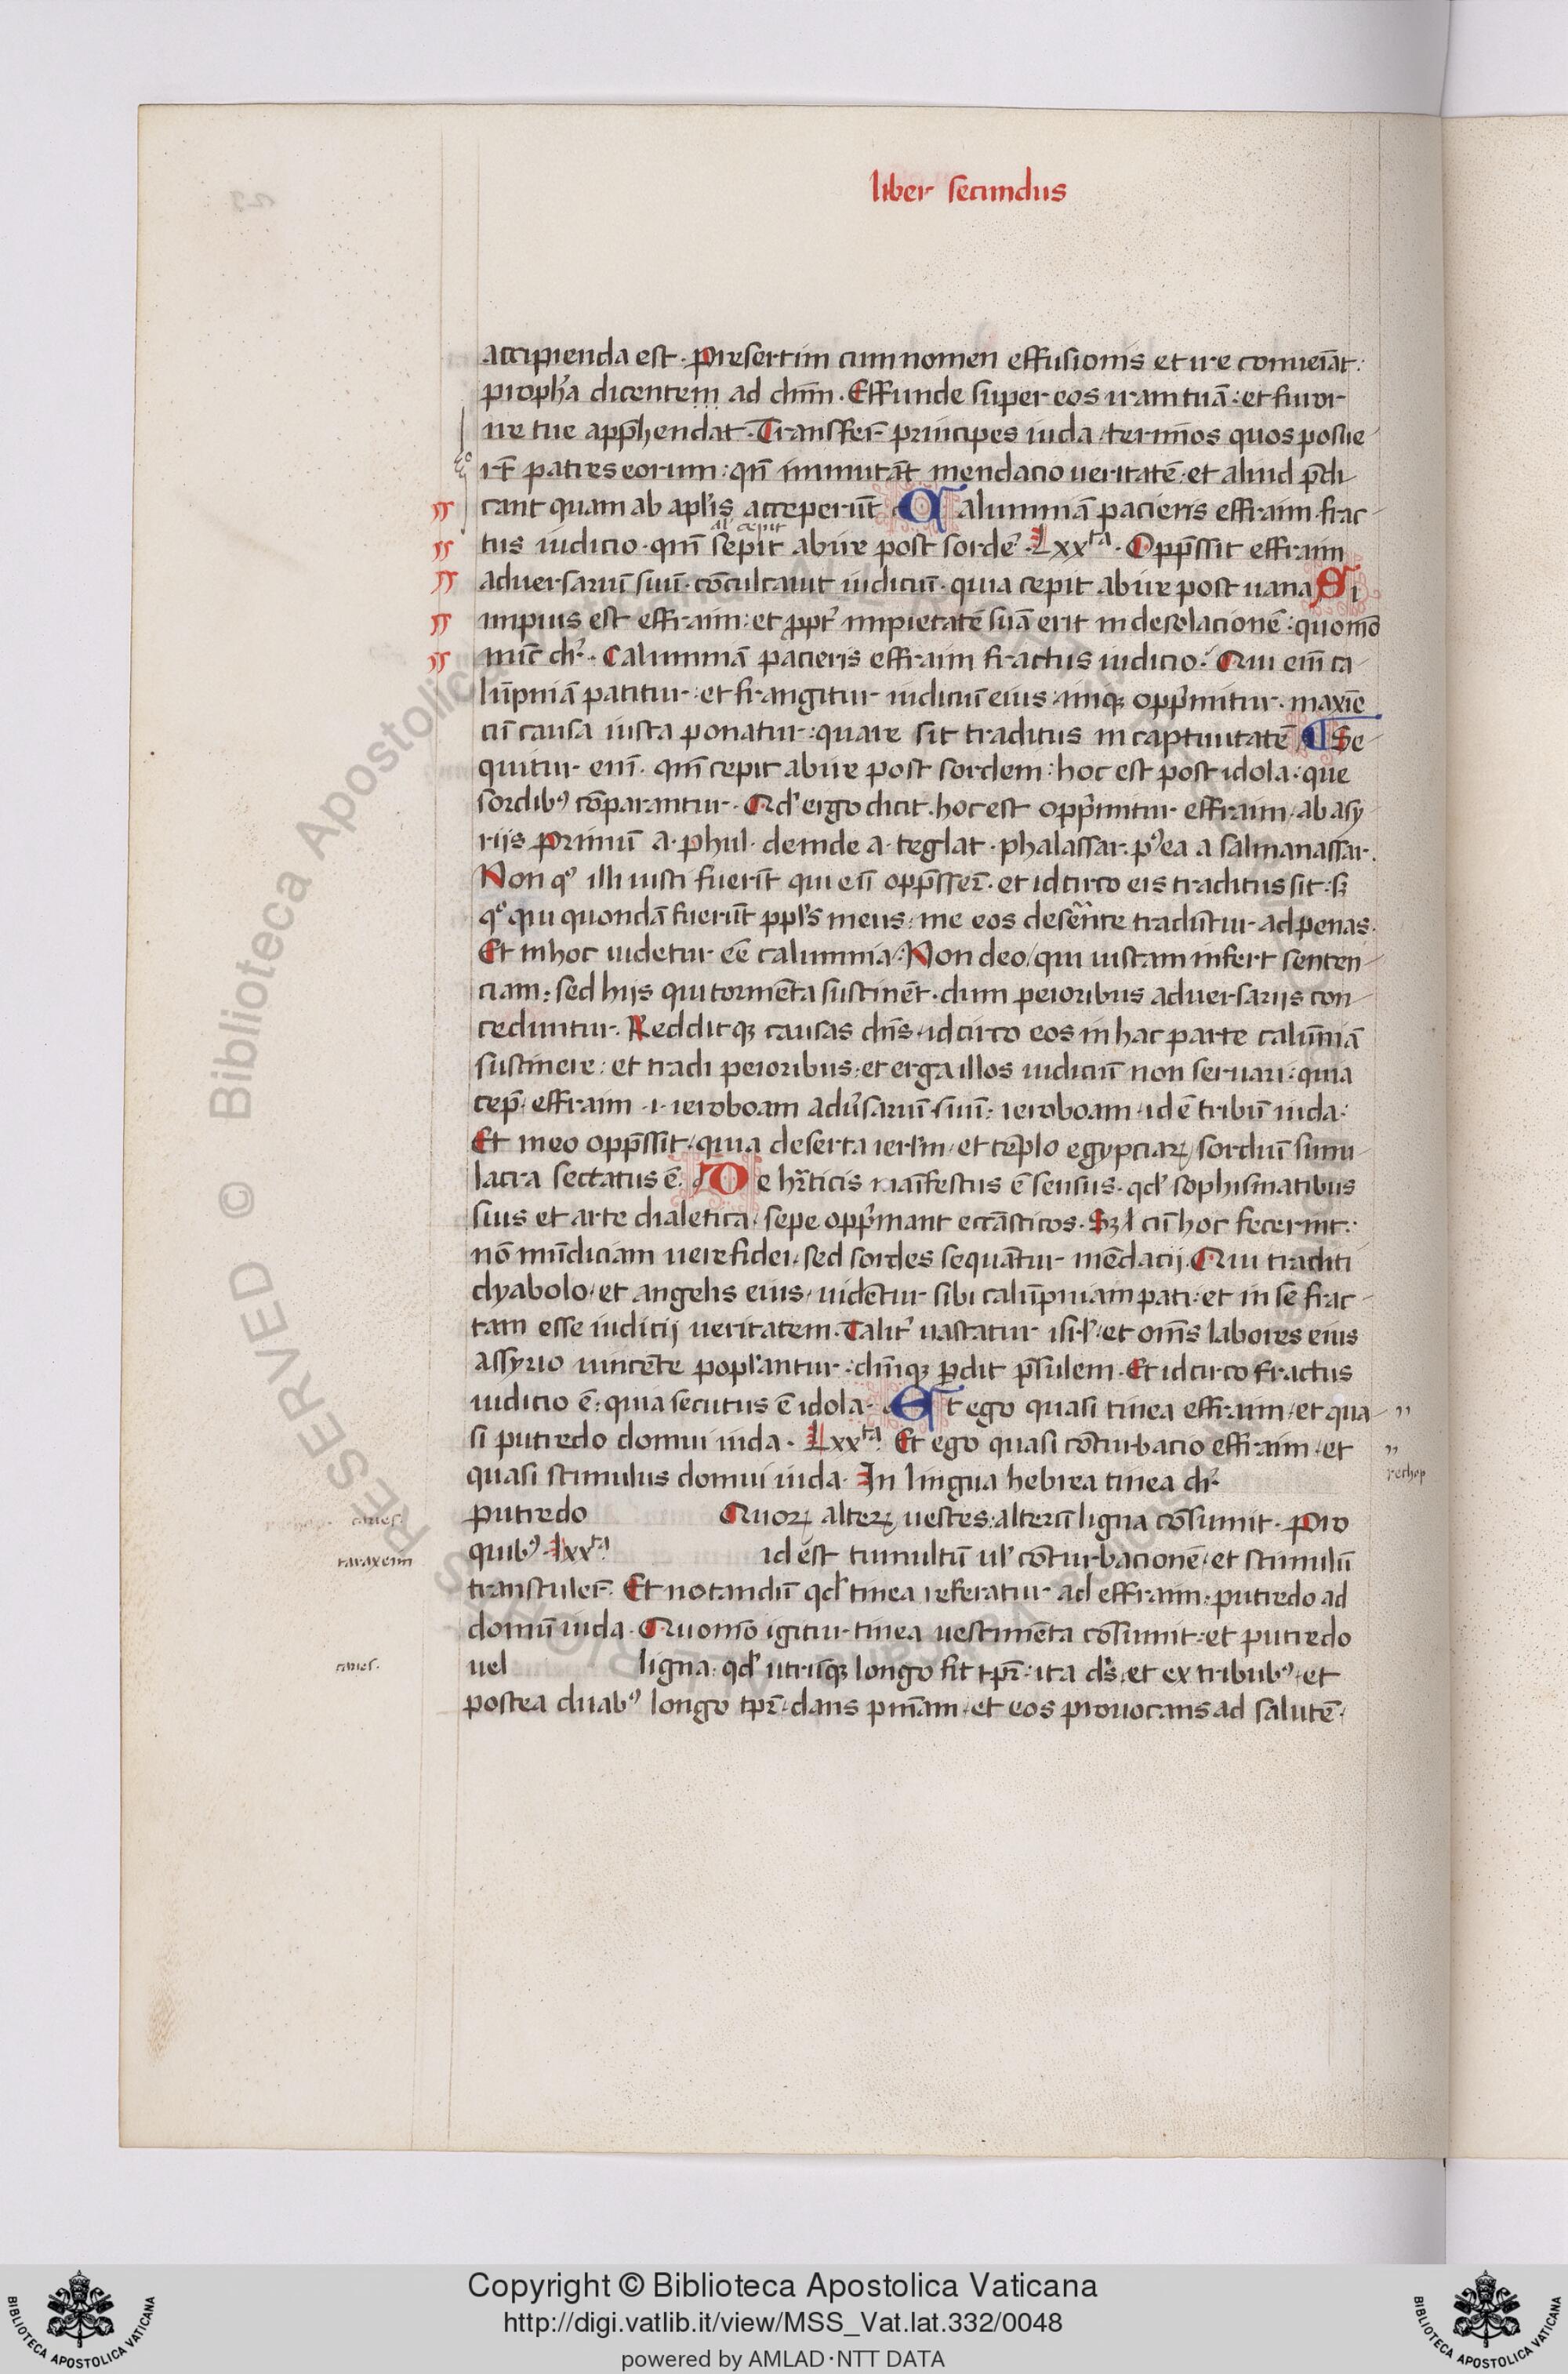 liber secundus
accipienda est. Presertim cum nomen effusionis et ire conueīat:
proph̄a dicentem ad dn̄m. Effunde super eos iram tuā: et furor
ire tue app̄hendat. Transfer̄ principes iuda termīos quos posue
rt̄ patres eorum: qn̄ immutāt mendacio ueritatē. et aliud p̄di
cant quam ab apl'is acceperūt Calumniā pacieris effraim frac
al' cepit
tus iudicio. qm̄ sepit abire post sordē. Lxxᵗᵃ. Opp̄ssit effraim
aduersariū suū. cōculcauit iudiciū. quia cepit abire post uana Si
impius est effraim: et ꝓpt' impietatē suā erit in desolacionē: quomō
nūc dr̄. Calumniā pacieris effraim fractus iudicio? Qui em̄ ca
lūpniā patitur: et frangitur iudiciū eius: iniq₃ opp̄mitur. maxīe
cū causa iusta ponatur: quare sit traditus in captiuitatē Se
quitur enī. qm̄ cepit abire post sordem: hoc est post idola: que
sordibꝰ cōparantur. Qd' ergo dicit. hoc est opp̄mitur effraim, ab asy
riis primū a. phul. deinde a. teglat. phalassar. pꝰea a salmanassar.
Non qꝰ illi iusti fuerūt qui eū opp̄sser̄. et idcirco eis traditus sit: s₃
qꝰ qui quondā fuerūt ppl's meus: me eos deser̄nte tradūtur ad penas.
Et in hoc uidetur eē calumnia. Non deo, qui iustam infert senten
ciam: sed hijs qui tormēta sustinēt. dum peioribus aduersarijs con
ceduntur. Redditq₃ causas dn̄s. idcirco eos in hac parte calūniā
sustinere: et tradi peioribus. et erga illos iudiciū non seruari: quia
cep̄. effraim .i. ieroboam adu'sariū suū: ieroboam. id ē tribū iuda:
Et in eo opp̄ssit, quia deserta ierl'm, et tēplo egypciaꝝ, sordiū simu
lacra sectatus ē. De hr̄ticis maīfestus ē sensus. qd' sophismatibus
suis et arte dialetica, sepe opp̄mant eccāsticos. S₃ cū hoc fecerint:
nō mūdiciam uere fidei, sed sordes sequātur mēdacij. Qui traditi
dyabolo, et angelis eius, uidētur sibi calūpniam pati: et in se frac
tam esse iudicij ueritatem. Talit' uastatur isr'l, et oms̄ labores eius
assyrio uincēte popl'antur: dn̄iq₃ ꝑdit p̄sulem. Et idcirco fractus
iudicio ē: quia secutus ē idola. Et ego quasi tinea effraim, et qua
si putredo domui iuda. Lxxᵗᵃ. Et ego quasi cōturbacio effraim. et
quasi stimulus domui iuda. In lingua hebrea tinea dr̄.
rechop
putredo Quoꝝ alteꝝ uestes: alterū ligna cōsumit. Pro
caries.
quibꝰ lxxᵗᵃ id est tumultū ul' cōturbacionē, et stimulū
taraxenn
transtuler̄. Et notandū qd' tinea referatur ad effraim: putredo ad
domū iuda. Quomō igitur tinea uestimēta cōsumit: et putredo
uel ligna: qd' utrūq₃ longo fit tpr̄: ita ds̄, et ex tribubꝰ, et
caries.
postea duabꝰ longo tpr̄. dans pniām. et eos prouocans ad salutē.
Copyright © Biblioteca Apostolica Vaticana
http://digi.vatlib.it/view/MSS_Vat.lat.332/0048
powered by AMLAD·NTT DATA
BIBLIOTECA APOSTOLICA VATICANA
BIBLIOTECA APOSTOLICA VATICANA